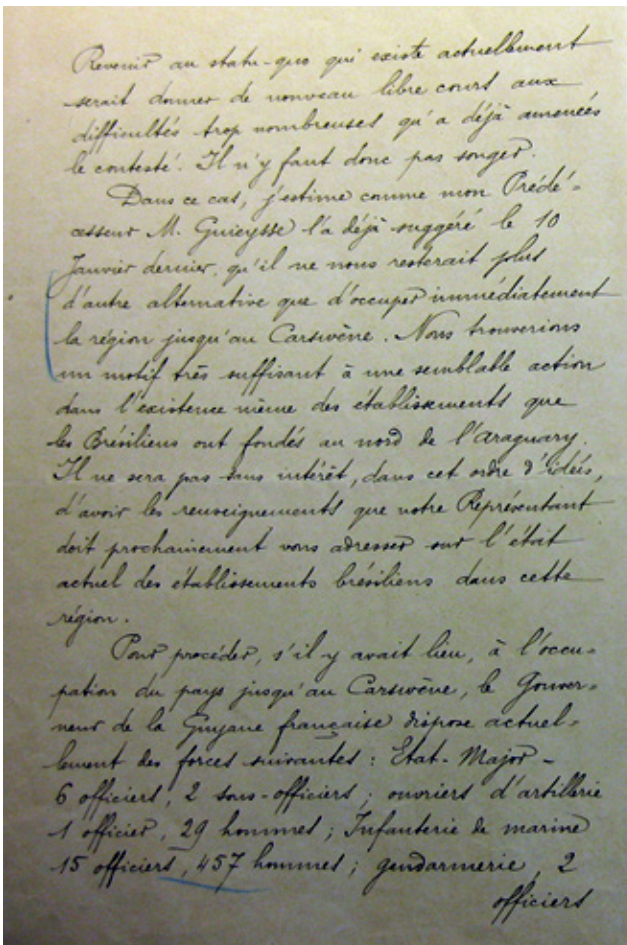 Revenir au statu-quo qui existe actuellement
serait donner de nouveau libre court aux
difficultés trop nombreuses qu'a déjà amenées
le contesté. Il n'y faut donc pas songer.
Dans ce cas, j'estime comme mon Prédé-
cesseur M. Guieysse l'a déjà suggéré le 10
Janvier dernier, qu'il ne nous resterait plus
d'autre alternative que d'occuper immédiatement
la région jusqu'au Carsevène. Nous trouverions
un motif très suffisant à une semblable action
dans l'existence même des établissements que
les Brésiliens ont fondés au nord de l'Araguary.
Il ne sera pas sans intérêt, dans cet ordre d'idées,
d'avoir les renseignements que notre Représentant
doit prochainement vous adresser sur l'état
actuel des établissements brésiliens dans cette
région.
Pour procéder, s'il y avait lieu, à l'occu-
pation du pays jusqu'au Carsevène, le Gouver-
neur de la Guyane française dispose actuel-
lement des forces suivantes : Etat-Major -
6 officiers, 2 sous-officiers ; ouvriers d'artillerie
1 officier, 29 hommes ; Infanterie de marine
15 officiers, 457 hommes ; gendarmerie, 2
officiers